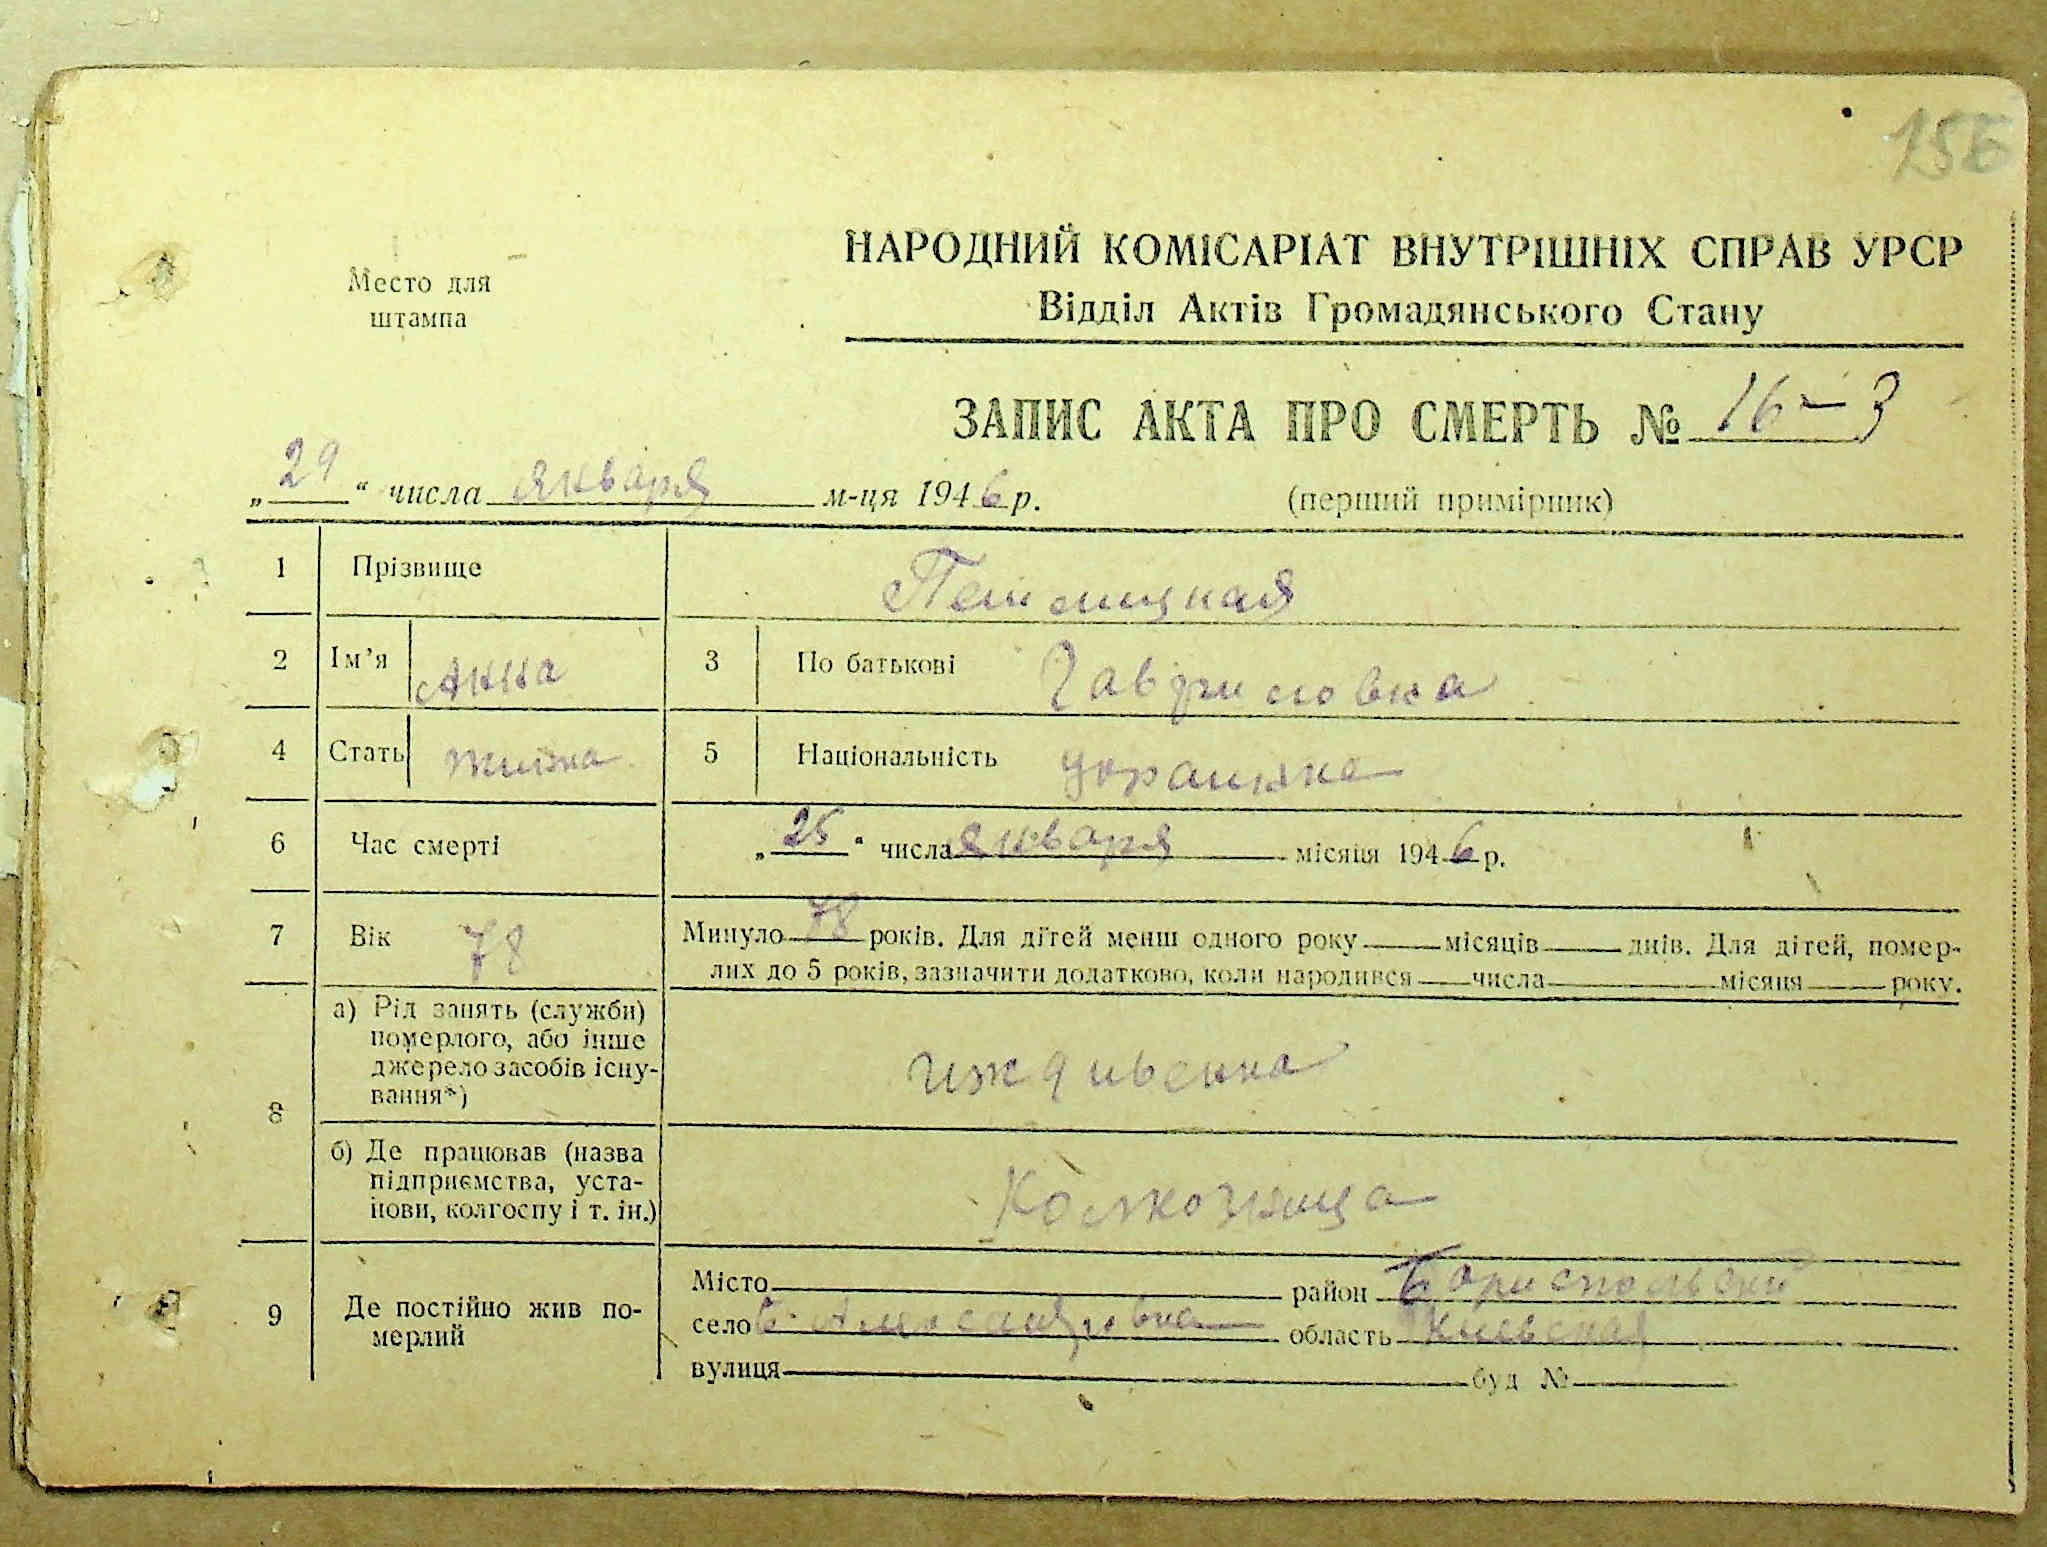 156
Место для
штампа
НАРОДНИЙ КОМІСАРІАТ ВНУТРІШНІХ СПРАВ УРСР
Відділ Актів Громадянського Стану
ЗАПИС АКТА ПРО СМЕРТЬ № 16-3
„29“ числа января м-ця 1946 р. (перший примірник)
1 Прізвище
2 Ім’я Анна 3 По батькові Гавриловна
4 Стать 5 Національність украинка
6 Час смерті „25“ числа января місяця 1946 р.
7 Вік 78 Минуло 78 років. Для дітей менш одного року місяців днів. Для дітей, помер-
лих до 5 років, зазначити додатково, коли народився числа місяця року.
8 а) Рід занять (служби)
померлого, або інше
джерело засобів існу-
вання*)
иждивенка
б) Де працював (назва
підприємства, уста-
нови, колгоспу і т. ін.)
Колхозница
9 Де постійно жив по-
мерлий
Місто район Бориспольский
село Б. Александровка область Киевская
вулиця буд №